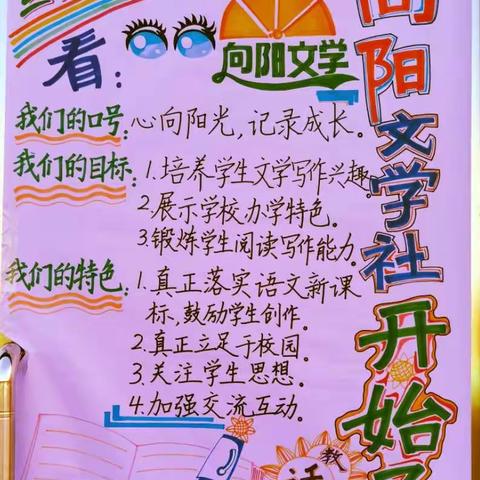 看：
向阳文学
我们的口号：心向阳光，记录成长。
我们的目标：1.培养学生文学写作兴趣。
2.展示学校办学特色。
3.锻炼学生阅读写作能力。
我们的特色：1.真正落实语文新课
标，鼓励学生创作。
2.真正立足于校园。
3.关注学生思想。
4.加强交流互动。
向阳文学社开始
教